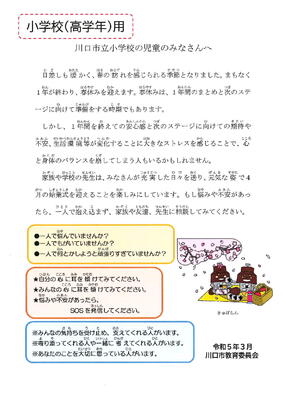 小学校(高学年)用
川口市立小学校の児童のみなさんへ
日差しも暖かく、春の訪れを感じられる季節となりました。まもなく
1年が終わり、春休みを迎えます。春休みは、1年間のまとめと次のステ
ージに向けて準備をする時期でもあります。
しかし、1年間を終えての安心感と次のステージに向けての期待や
不安、生活環境等が変化することに大きなストレスを感じることで、心
と身体のバランスを崩してしまう人もいるかもしれません。
家族や学校の先生は、みなさんが充実した日々を送り、元気な姿で4
月の始業式を迎えることを楽しみにしています。もし悩みや不安があっ
たら、一人で抱え込まず、家族や友達、先生に相談してみてください。
●一人で悩んでいませんか?
●一人でもがいていませんか?
●一人で何とかしようと頑張りすぎていませんか?
★自分の心に耳を傾けてみてください。
★みんなの心に耳を傾けてみてください。
★悩みや不安があったら、
SOSを発信してください。
※みんなの気持ちを受け止め、支えてくれる人がいます。
※寄り添ってくれる人や一緒に考えてくれる人がいます。
※あなたのことを大切に思っている人がいます。
きゅぽらん
令和5年3月
川口市教育委員会